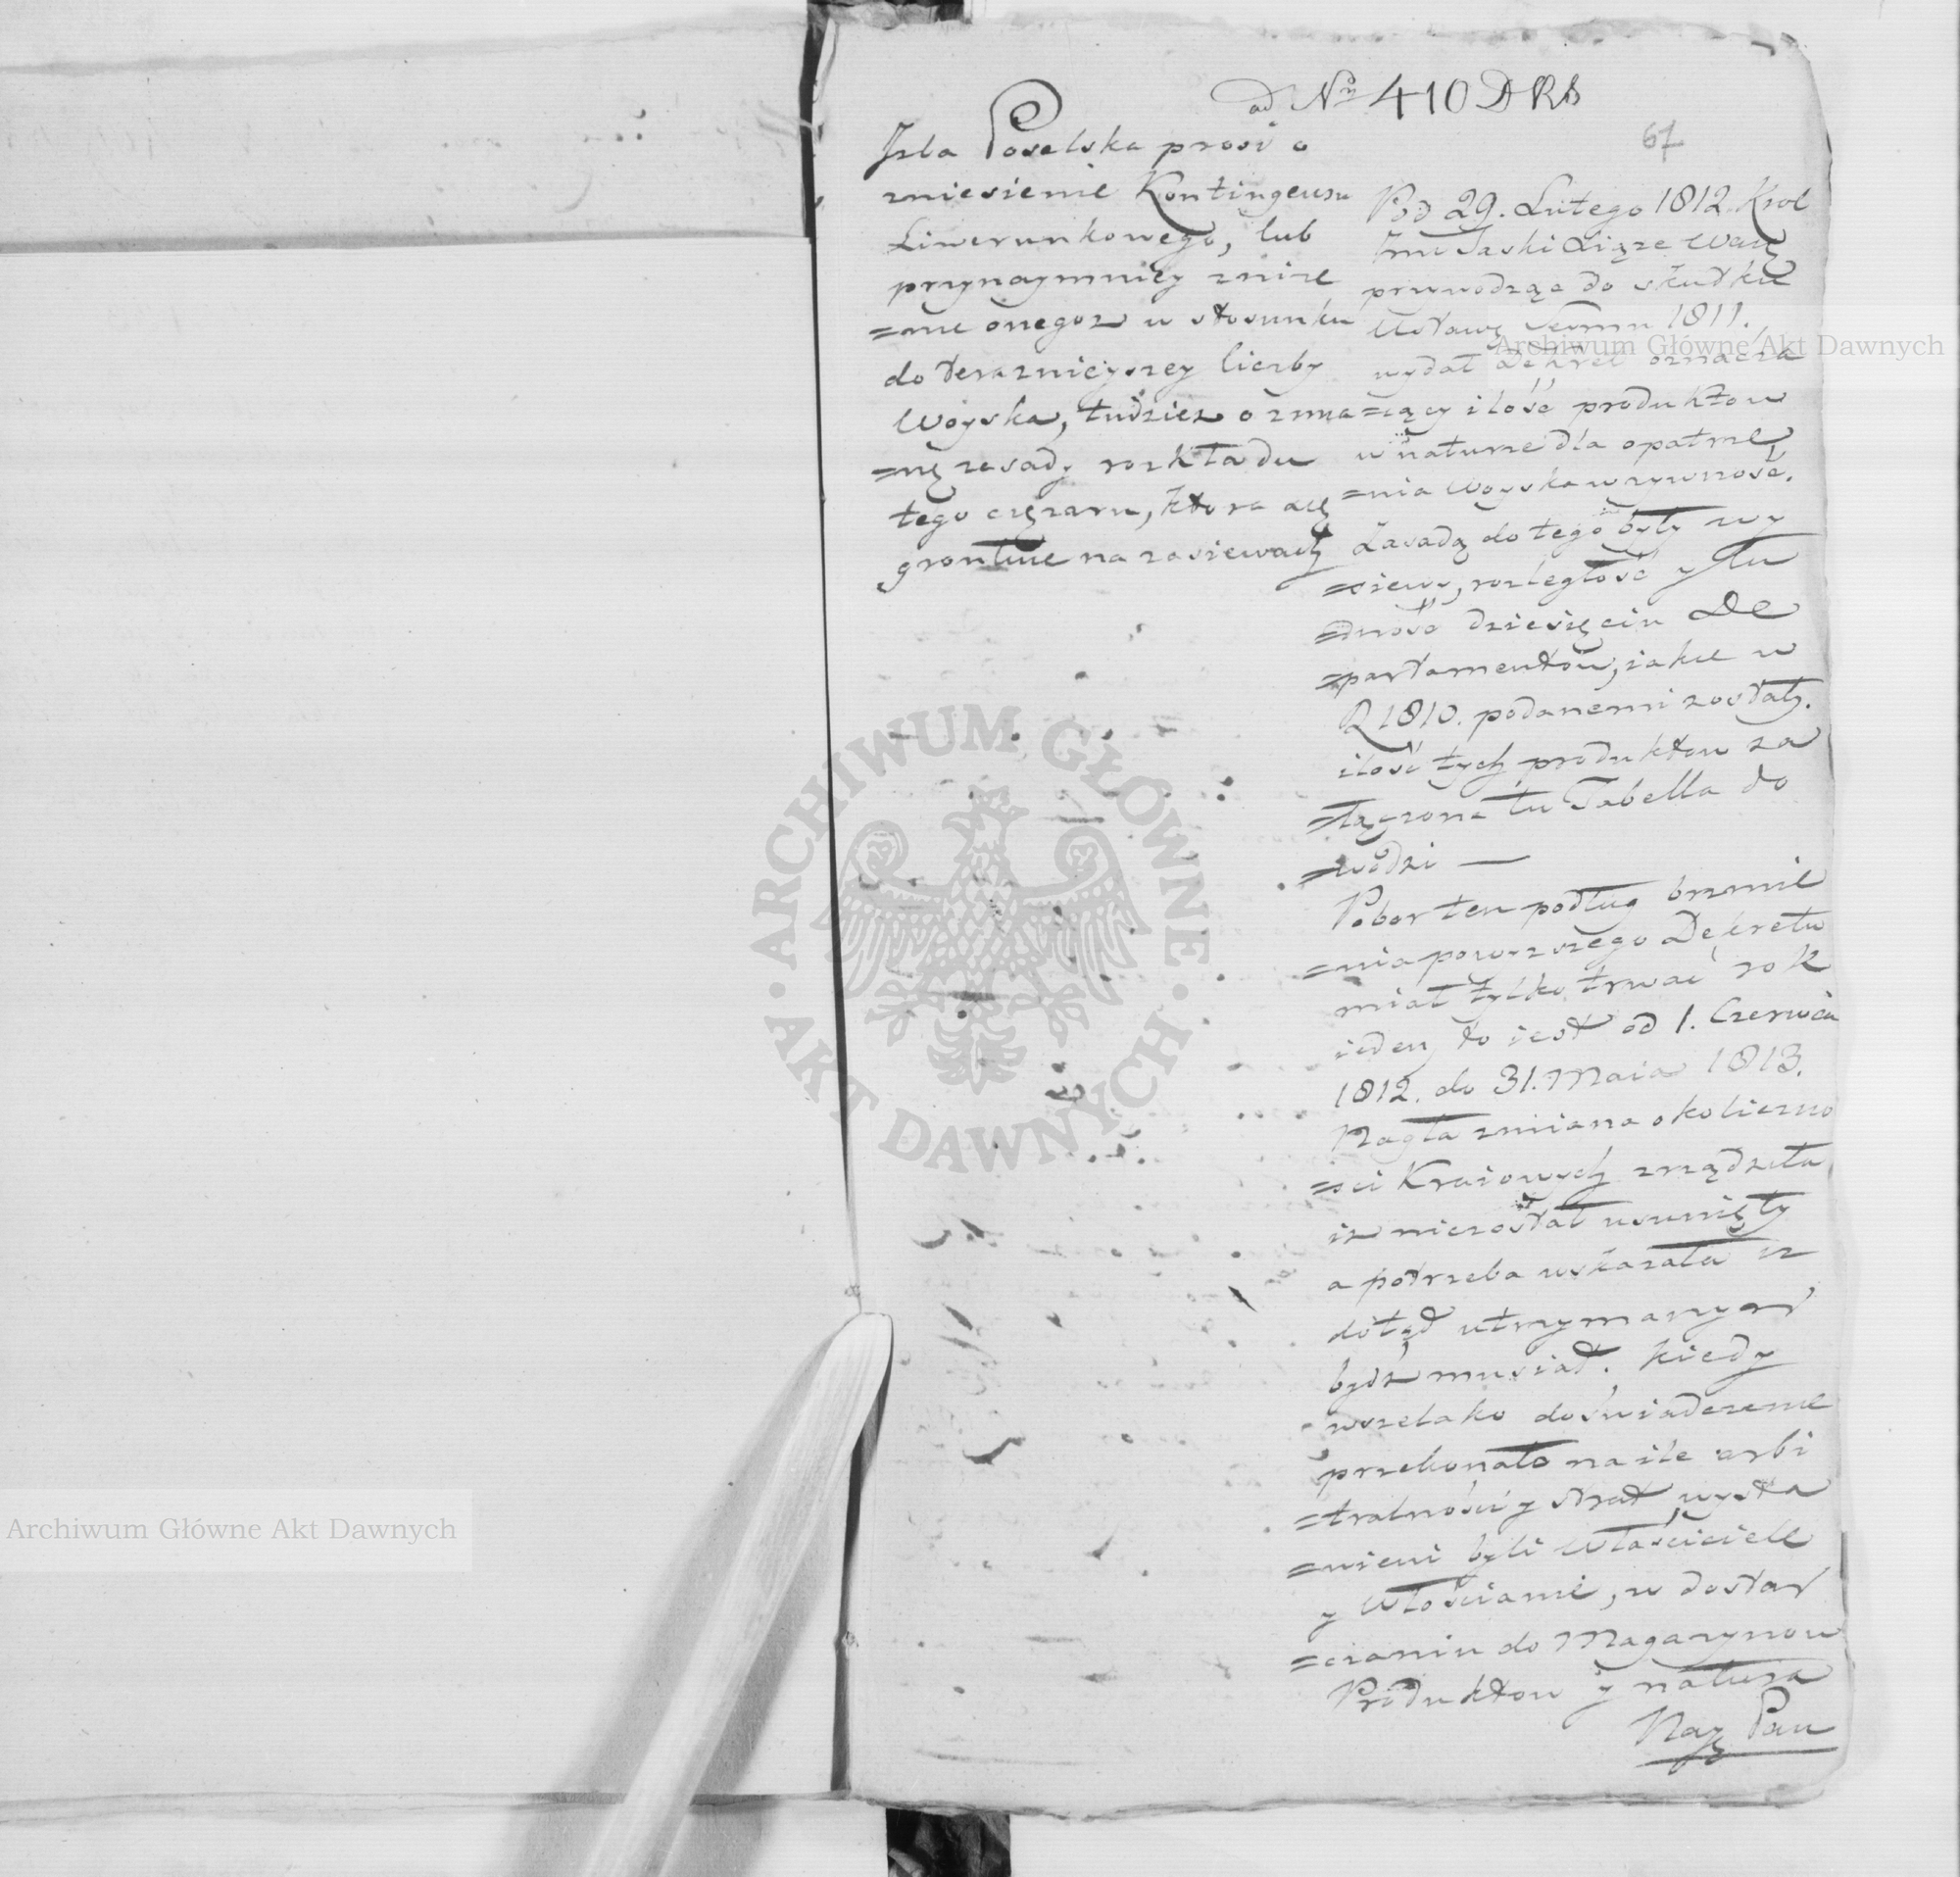 ad Nrō 410 D R S
67
Jzba Poselska prosi o
zniesienie Kontingensu
Liwerunkowego, lub
przynaymniey zniże
=nie onegoż w stosunku
do terazniejszey liczby
Woyska, tudzież o zmia
=nę zasady rozkładu
tego ciężaru, ktora się
grontuie na zasiewach
Pod 29. Lutego 1812 Krol
Jmc Saski Xiąże Warz
przywodząc do skutku
Ustawę Seymu 1811.
wydał Dekret oznacza
=iący ilość produktow
w naturze dla opatrze
=nia Woyska w zywność.
Zasadą do tego były wy
=siewy, rozległość y lu
=dność dziesięciu De
=partamentow, iakie w
R 1810. podanemi zostały.
ilość tych produktow za
=łączona tu Tabella do
=wodzi —
Pobor ten podług brzmie
=nia powyzszego Dekretu
miał tylko trwać rok
ieden to iest od 1. Czerwca
1812. do 31. Maia 1813.
Nagła zmiana okoliczno
=sci Kraiowych zrządziła
iż niezostał usunięty
a potrzeba wskazała iż
dotąd utrzymanym
bydź musiał. Kiedy
wszelako doświadczenie
przekonało na ile arbi
=tralności y strat wysta
=wieni byli Właściciele
y Włościanie, w dostar
=czaniu do Magazynow
Produktow y natura
Nay Pan
Archiwum Główne Akt Dawnych
ARCHIWUM GŁÓWNE · AKT DAWNYCH ·
Archiwum Główne Akt Dawnych